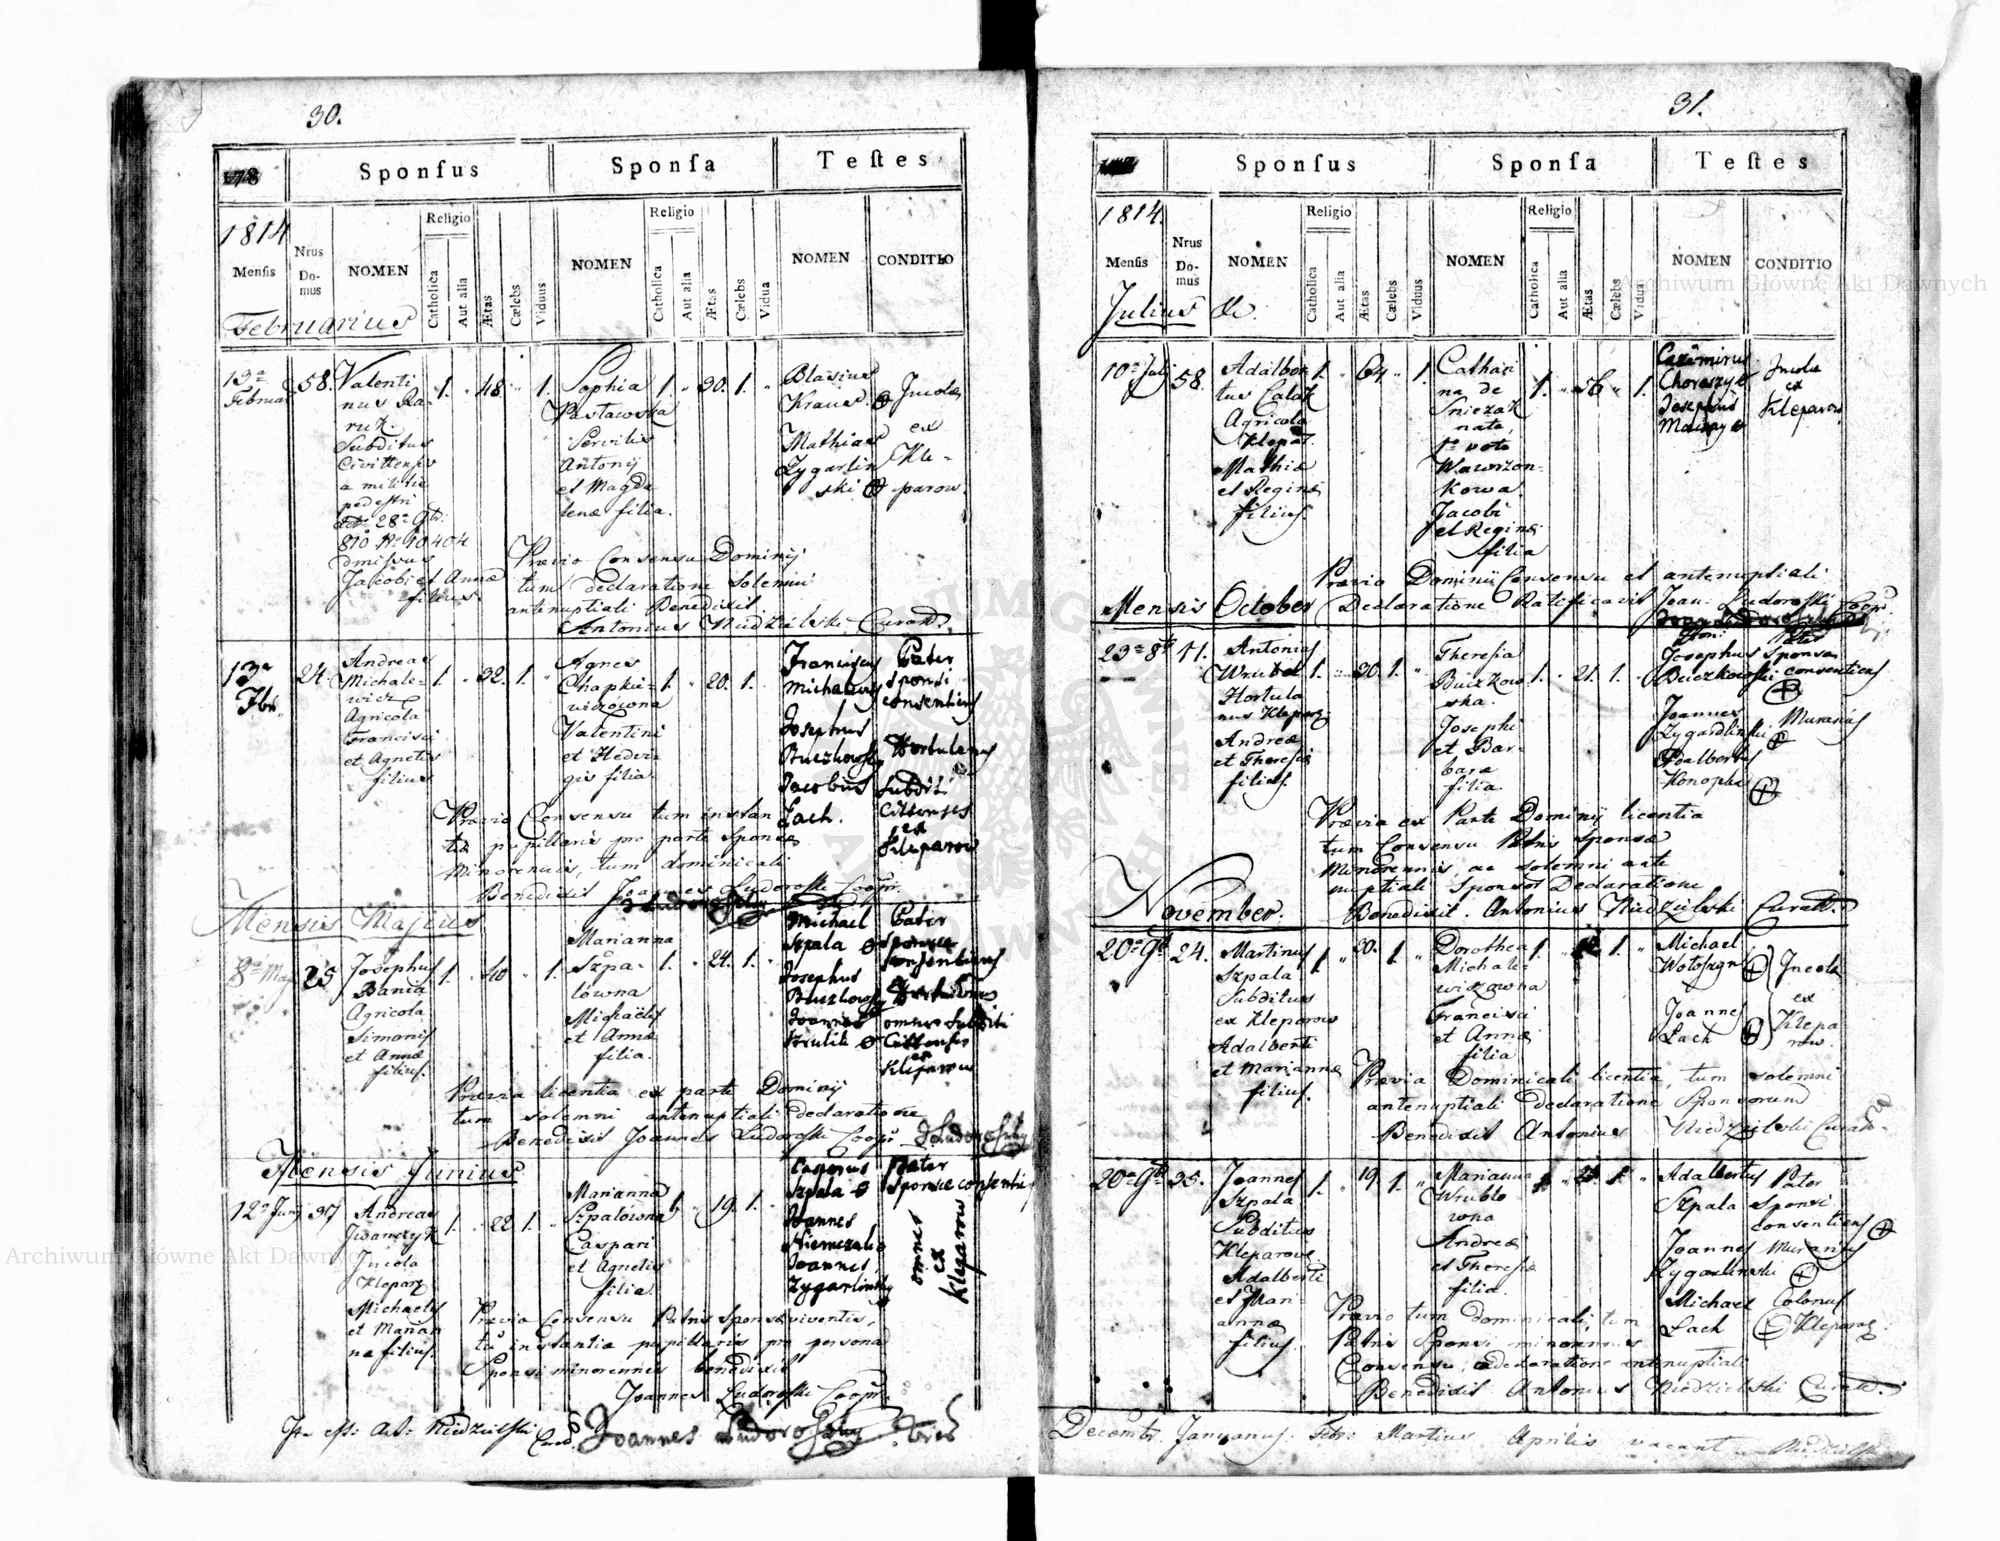 30.
Sponsus Sponsa Testes
1814
Mensis
Nrus Domus
NOMEN
Religio
Catholica
Aut alia
Ætas
Cælebs
Viduus
NOMEN
Religio
Catholica
Aut alia
Ætas
Cælebs
Vidua
NOMEN
CONDITIO
Februarius
13a
Februar
58.
Valenti
nus Ra-
ruk.
Subditus
Civittensis
a militia
pedestri
810 No 10404
dmissus
Jacobi et Annæ
filius.
1. 48. 1.
Sophia
Pastawska
Servilis
Antonij
et Magda
lenæ filia.
1. 30. 1.
Blasius
Kraus
Mathias
Zygarlin
ski
Incolæ
ex
Kle-
parow.
Prævio Consensu Dominij
tum declaratione solemni
antenuptiali Benedixit
Antonius Niedzielski Curat.
13a
Fbr.
24.
Andreas
Michale-
wicz
Agricola
Francisci
et Agnetis
filius
1. 32. 1.
Agnes
Chapkie-
wiczowna
Valentini
et Hedvi-
gis filia
1. 20. 1.
Franciscus
Michalewicz
Josephus
Buczkowski
Jacobus
Lach.
Pater
sponsi
consentiens
Hortulanus
Subditi
Cittenses
ex
Kleparow
Prævio Consensu tum instan
tia pupillaris pro parte Sponsæ
Minorennis, tum dominicali
Benedixit Joannes Ludorofski Coopr.
Mensis Majus
8a Maj
25
Josephus
Bania
Agricola
Simonis
et Annæ
filius.
1. 40 1.
Marianna
Szpa-
lowna
Michaëlis
et Annæ
filia.
1. 24. 1.
Michael
Szpala
Josephus
Buczkowski
Joannes
Krulik
Pater
Sponsæ
consentiens
omnes Subditi
Cittenses
ex
Kleparow
Prævia licentia ex parte Dominij
tum solemni antenuptiali declaratione
Benedixit Joannes Ludorofski Coopr
Mensis Junius
12a Junij
37
Andreas
Iwanczyk
Incola
Klepar.
Michaelis
et Marian
næ filius.
1. 22 1.
Marianna
Szpalowna
Caspari
et Agnetis
filia
1. 19. 1.
Casparus
Szpala
Joannes
Niemczak
Joannes
Zygarlinski
Pater
Sponsæ consentiens
omnes
ex
Kleparow
Prævio Consensu Patris Sponsæ viventis,
tu instantia pupillaris pro persona
Sponsi minorennis benedixit
Joannes Ludorofski Coopr.
Niedzielski Curat.
Joannes
31.
Sponsus Sponsa Testes
1814.
Mensis
Nrus Domus
NOMEN
Religio
Catholica
Aut alia
Ætas
Cælebs
Viduus
NOMEN
Religio
Catholica
Aut alia
Ætas
Cælebs
Vidua
NOMEN
CONDITIO
Julius
10a Julij
58.
Adalber
tus Calak
Agricola
Klepar.
Mathiæ
et Reginæ
filius.
1. 64 1.
Cathari
na de
Sniezak
nata,
1o voto
Wawrzon-
kowa.
Jacobi
et Reginæ
filia
1. 56 1.
Casimirus
Choraszy
Josephus
Incolæ
ex
Kleparow
Prævio Dominii Consensu et antenuptiali
Declaratione Ratificavit Joan: Ludorofski Coopr.
Mensis October
23a 8br
11.
Antonius
Wrubel
Hortula
nus Klepar.
Andreæ
et Theresiæ
filius.
1. 30. 1.
Theresia
Buczkow
ska.
Josephi
et Bar-
baræ
filia.
1. 21. 1.
Josephus
Buczkowski
Joannes
Zygardlinski
Adalbertus
Konopka
Pater
Sponsæ
consentiens
Murarius
Prævia ex Parte Dominij licentia
tum Consensu Patris Sponsæ
Minorennis, ac solemni ante
nuptiali Sponsor Declaratione
Benedixit. Antonius Niedzielski Curat.
November.
20a 9br
24.
Martinus
Szpala
Subditus
ex Kleparow
Adalberti
et Mariannæ
filius.
1. 30. 1.
Dorothea
Michale-
wiczowna
Francisci
et Annæ
filia
1. 1.
Michael
Joannes
Lach
Incolæ
ex
Klepa
row.
Prævia Dominicali licentia, tum solemni
antenuptiali declaratione Sponsorum
Benedixit Antonius Niedzielski Curat.
20a 9br
35.
Joannes
Szpala
Subditus
Kleparov.
Adalberti
et Mari-
annæ
filius.
1. 19. 1.
Marianna
Wrublo-
wna
Andreæ
et Theresiæ
filia.
Adalbertus
Szpala
Joannes
Zygarlinski
Michael
Lach
Pater
Sponsi
consentiens
Murarius
Colonus
Klepar.
Prævio tum dominicali, tum
Patris Sponsi minorennis
Consensu, declaratione antenuptiali
Benedixit Antonius Niedzielski Curat.
Decembr. Januarius. Febr. Martius Aprilis vacant
Archiwum Główne Akt Dawnych
Archiwum Główne Akt Dawnych